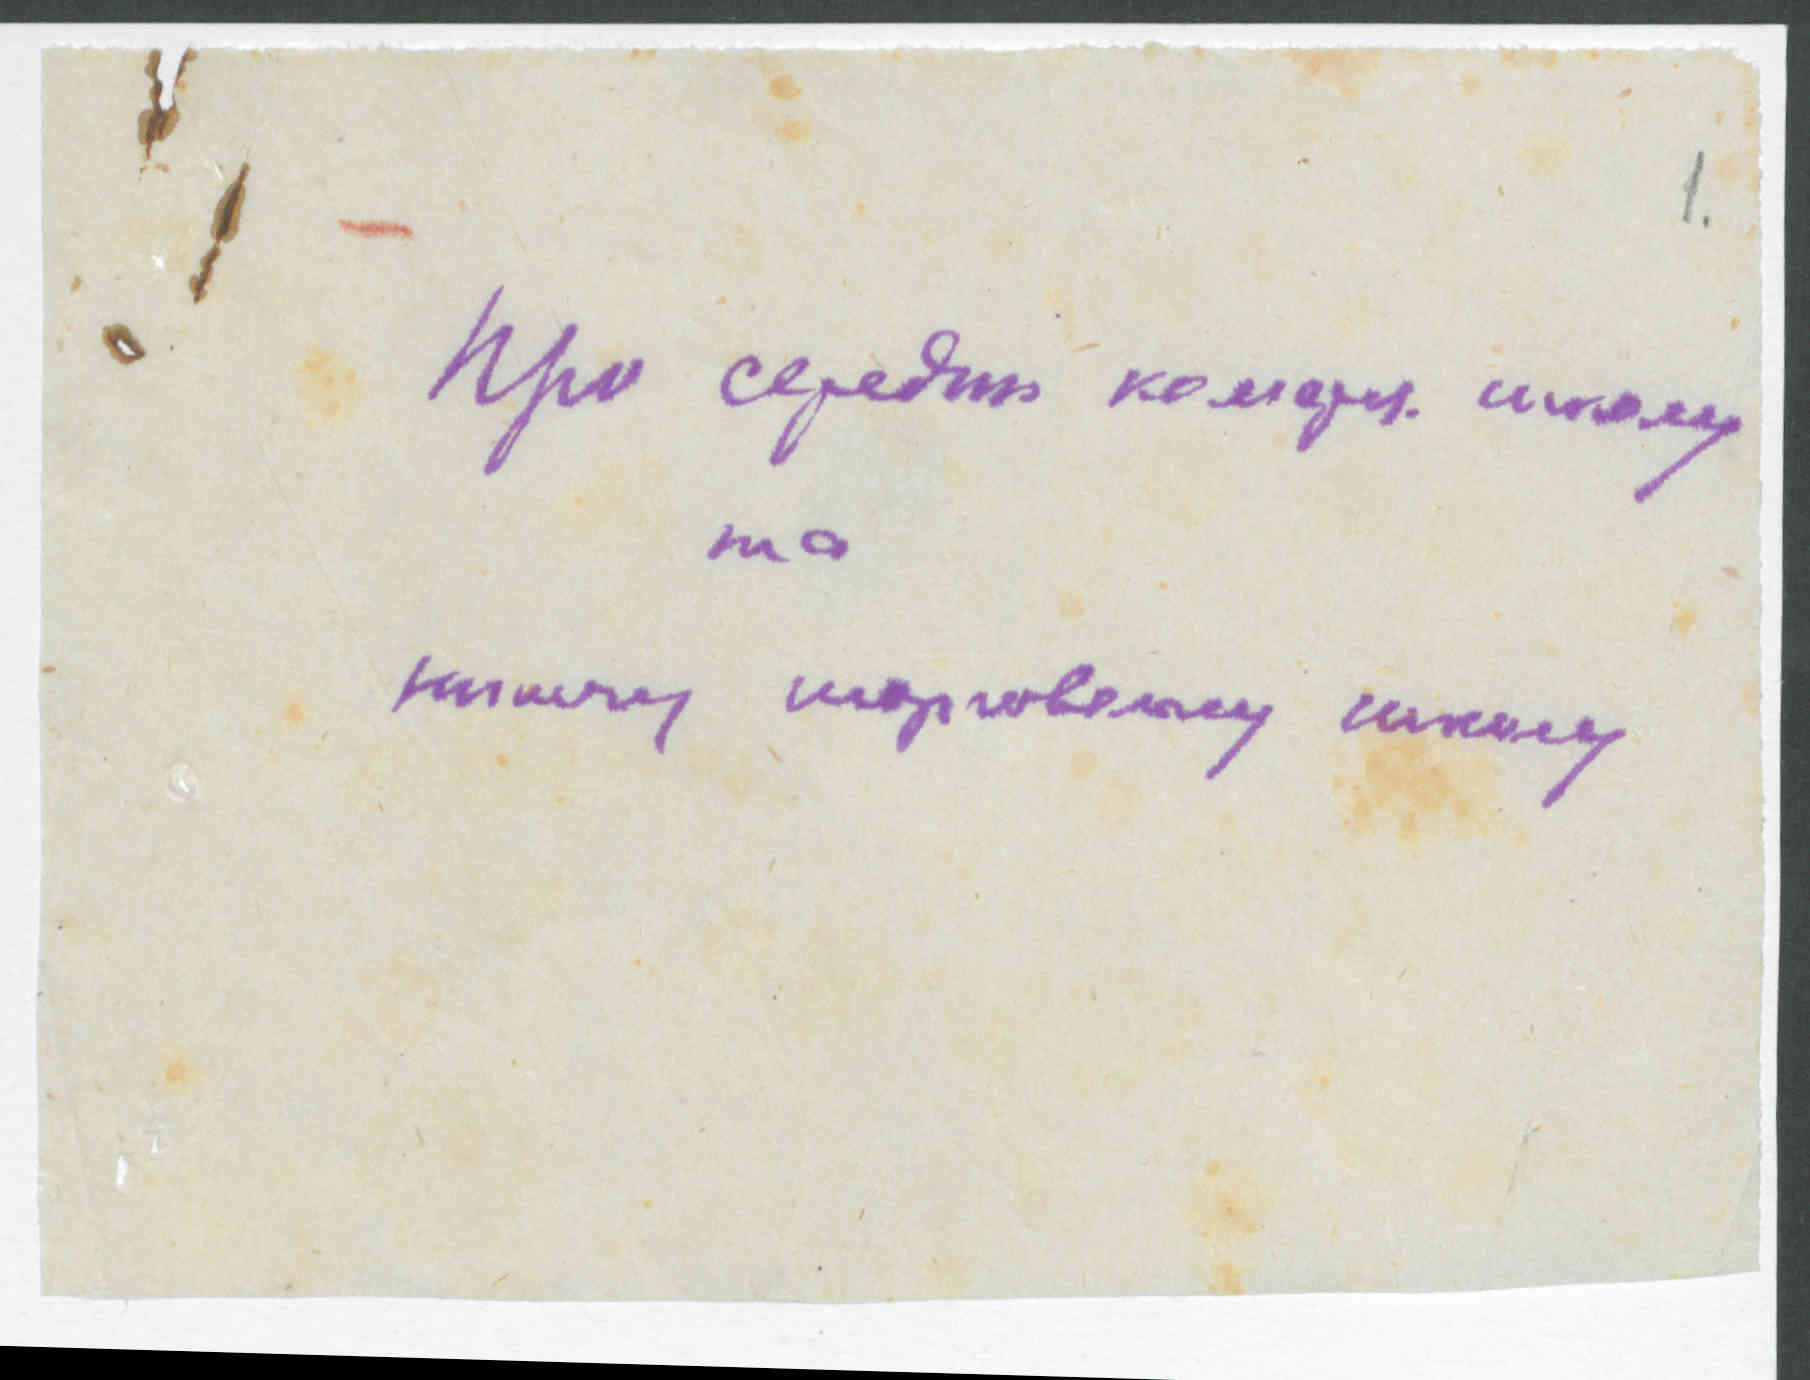 1.
Про середню комерц. школу
та
нижчу торговельну школу